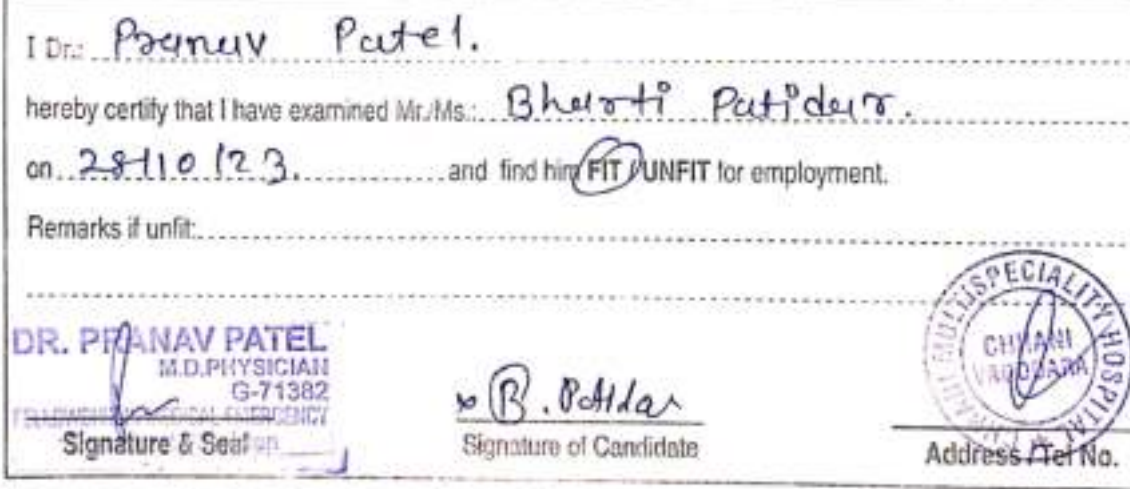 I Dr.: Pranav Patel.
hereby certify that I have examined Mr./Ms.: Bharti Patidar.
on 28/10/23. and find him FIT / UNFIT for employment.
Remarks if unfit:
DR. PRANAV PATEL
M.D.PHYSICIAN
G-71382
MEDICAL EMERGENCY
Signature & Seal
x B. Patidar
Signature of Candidate
MULTISPECIALITY HOSPITAL
CHHANI
VADODARA
Address / Tel No.